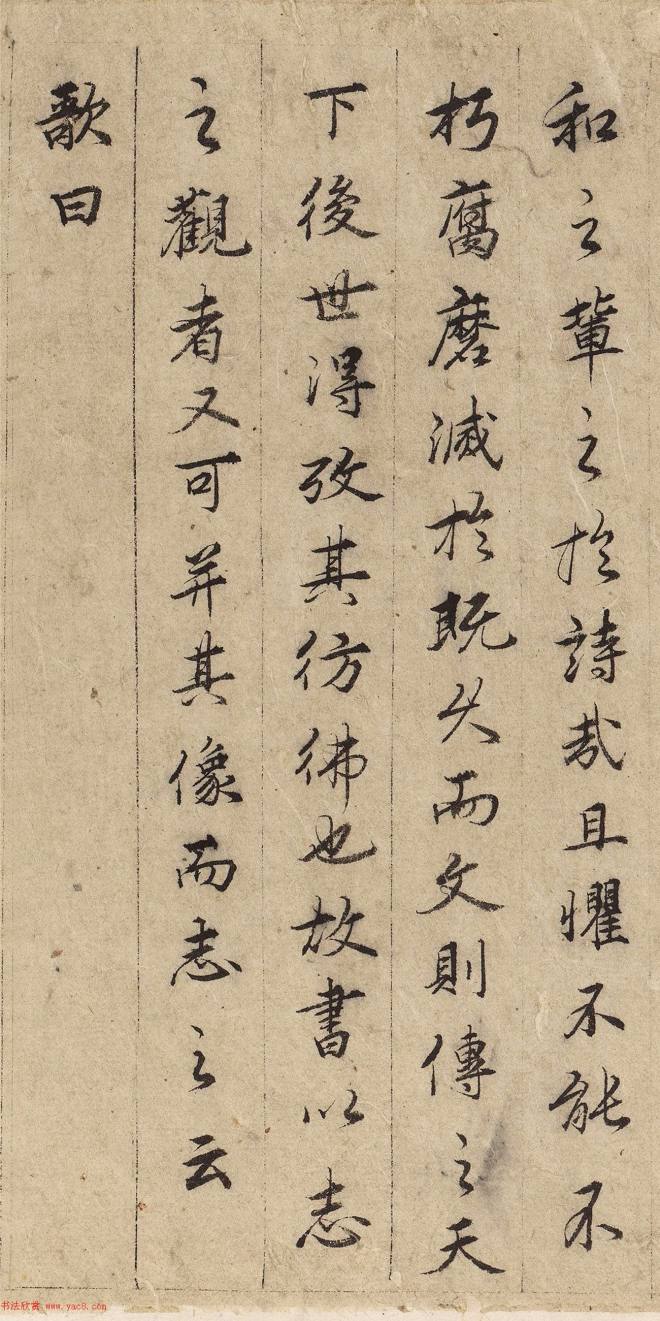 和之輩之於詩哉且懼不能不
朽腐磨滅於既久而文則傳之天
下後世得攷其彷彿也故書以志
之觀者又可并其像而志之云
歌曰
书法欣赏 www.yac8.com